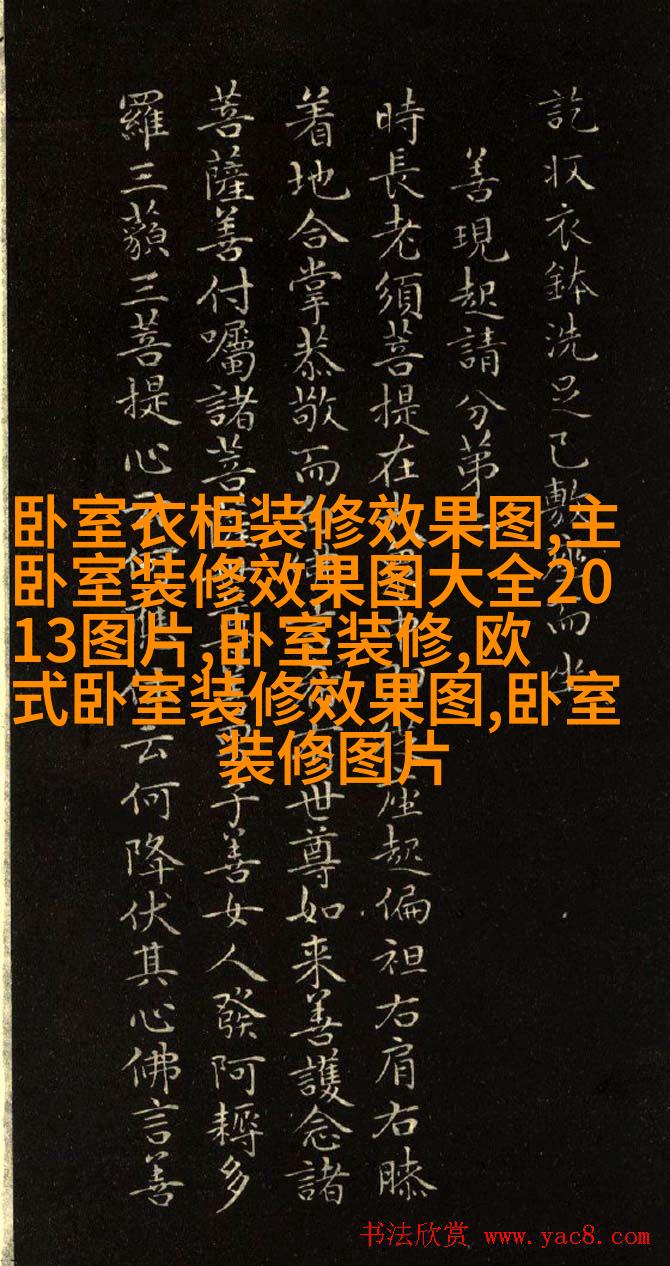 訖收衣鉢洗足已敷座而坐
善現起請分第
時長老須菩提在座起偏袒右肩右膝
着地合掌恭敬而世尊如来善護念諸
菩薩善付囑諸菩子善女人發阿耨多
羅三藐三菩提心云何降伏其心佛言善
卧室衣柜装修效果图,主
卧室装修效果图大全20
13图片,卧室装修,欧
式卧室装修效果图,卧室
装修图片
书法欣赏 www.yac8.com